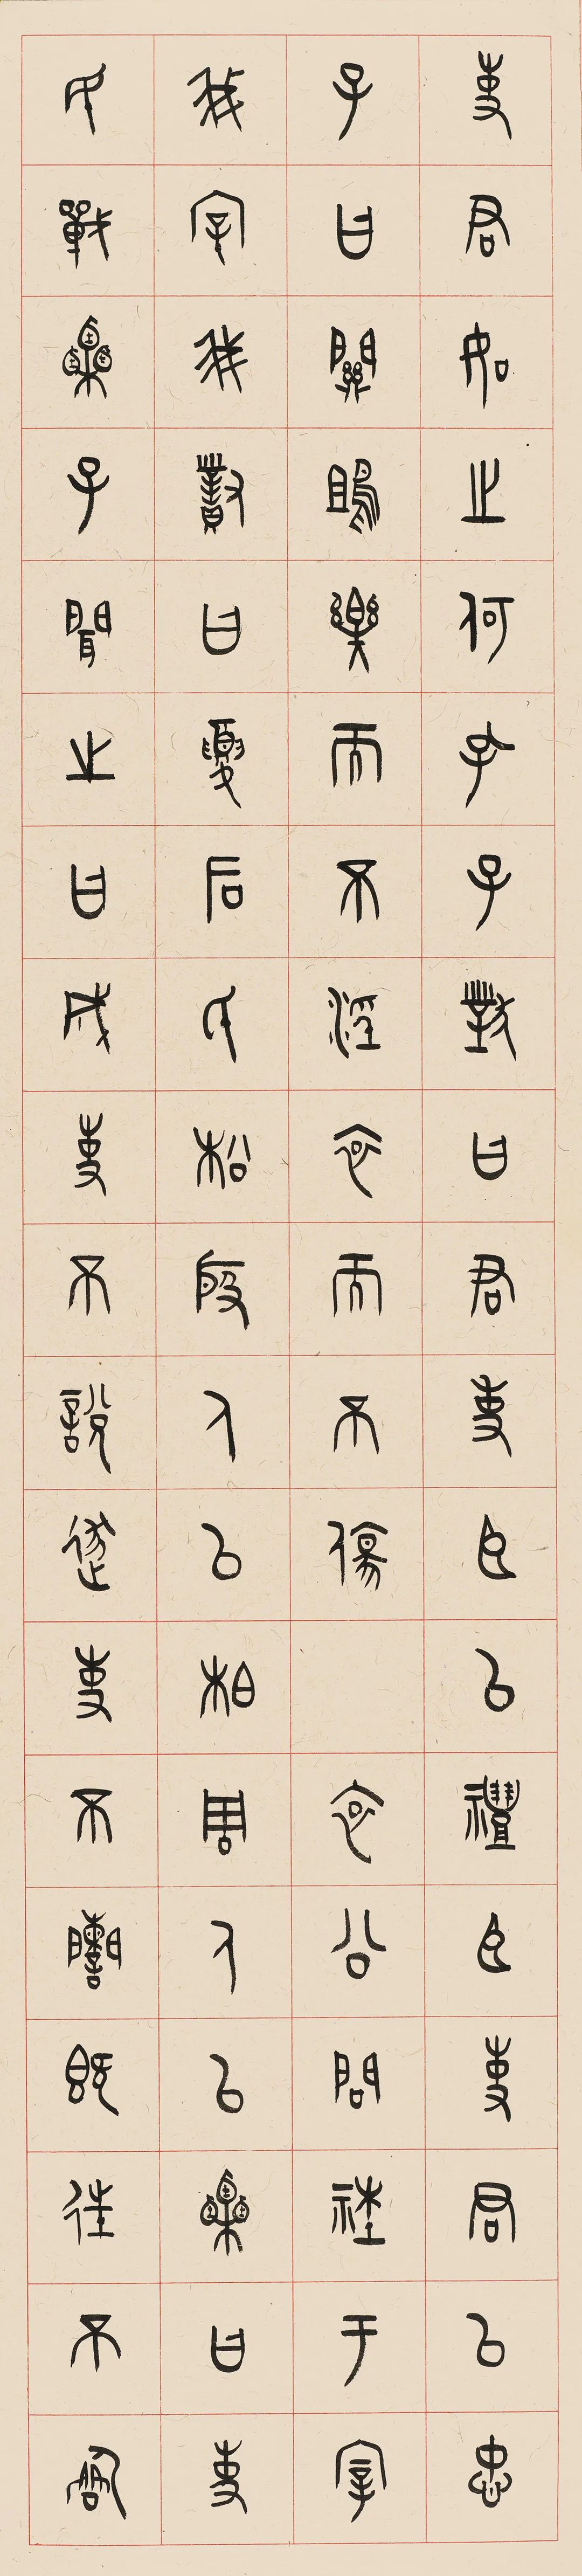 事君如之何孔子對曰君使臣以禮臣事君以忠
子曰關雎樂而不淫哀而不傷 哀公問社于宰
我宰我對曰夏后氏松殷人以柏周人以栗曰使
民戰栗子聞之曰成事不說遂事不諫既往不咎